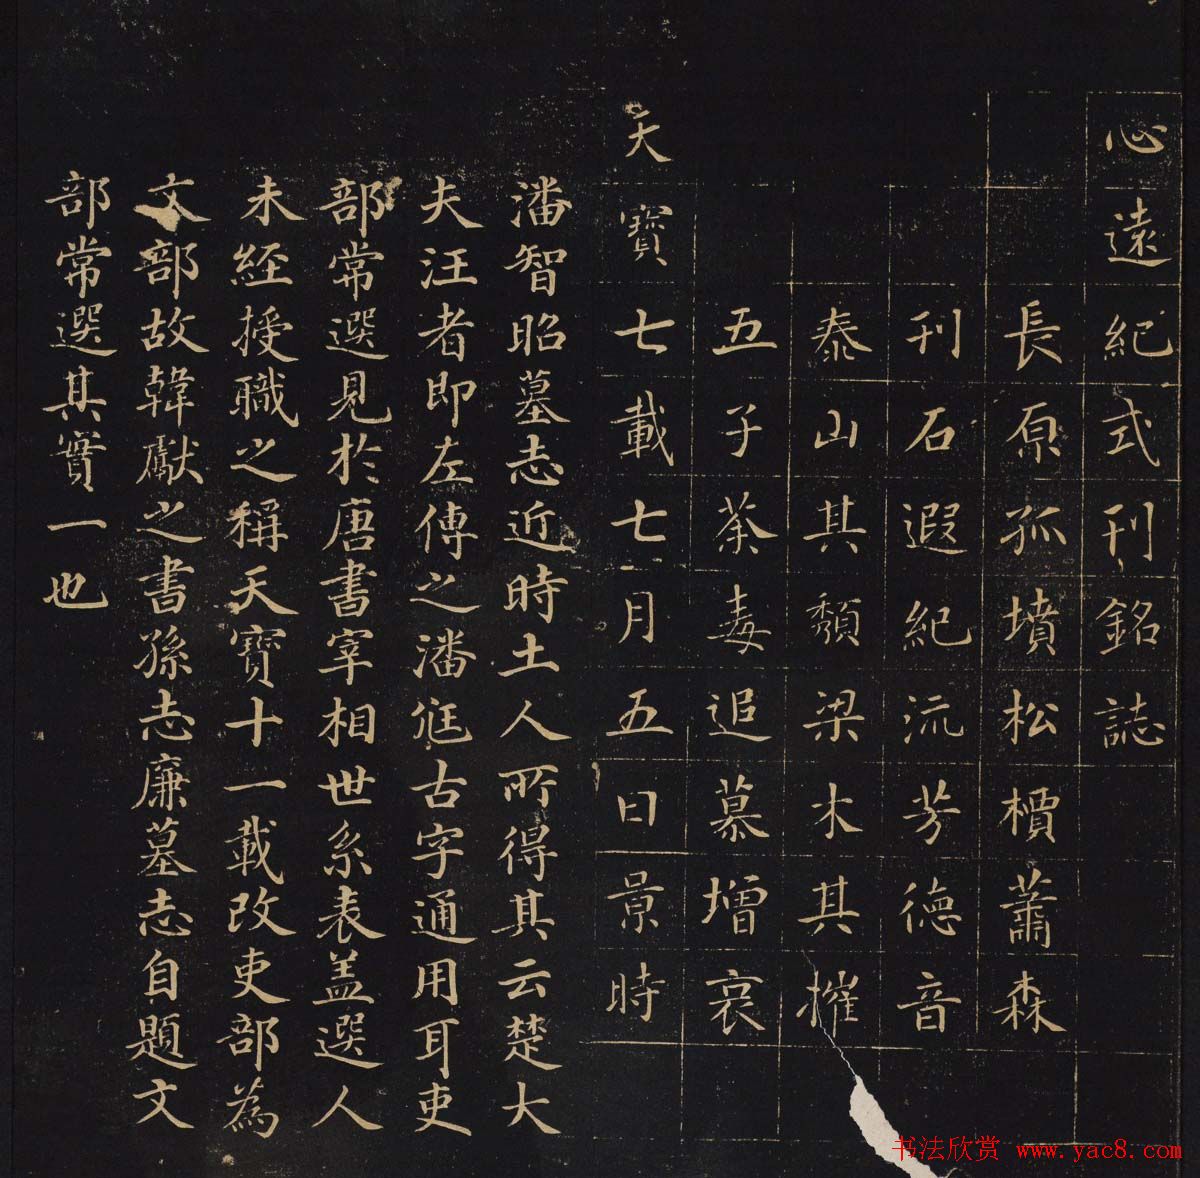 心遠紀式刊銘誌
長原孤墳松檟蕭森
刊石遐紀流芳德音
泰山其頽梁木其摧
五子荼毒追慕增哀
天寶七載七月五日景時
潘智昭墓志近時土人所得其云楚大
夫汪者即左傳之潘尫古字通用耳吏
部常選見於唐書宰相世系表盖選人
未經授職之稱天寶十一載改吏部為
文部故韓獻之書孫志廉墓志自題文
部常選其實一也
书法欣赏 www.yac8.com